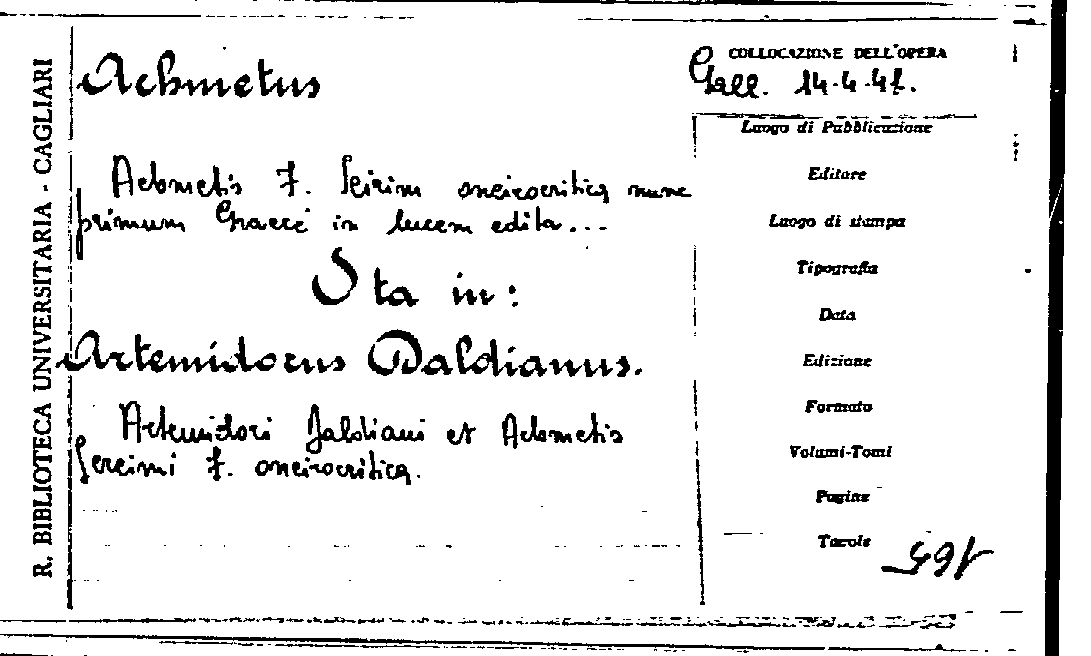 R. BIBLIOTECA UNIVERSITARIA - CAGLIARI
Achmetus
COLLOCAZIONE DELL'OPERA
Gall. 14.4.47.
Achmetis F. Seirim oneirocritica nunc
primum Graece in lucem edita...
Sta in:
Artemidorus Daldianus.
Artemidori Daldiani et Achmetis
Sereimi F. oneirocritica.
Luogo di Pubblicazione
Editore
Luogo di stampa
Tipografia
Data
Edizione
Formato
Volumi-Tomi
Pagine
Tavole
165